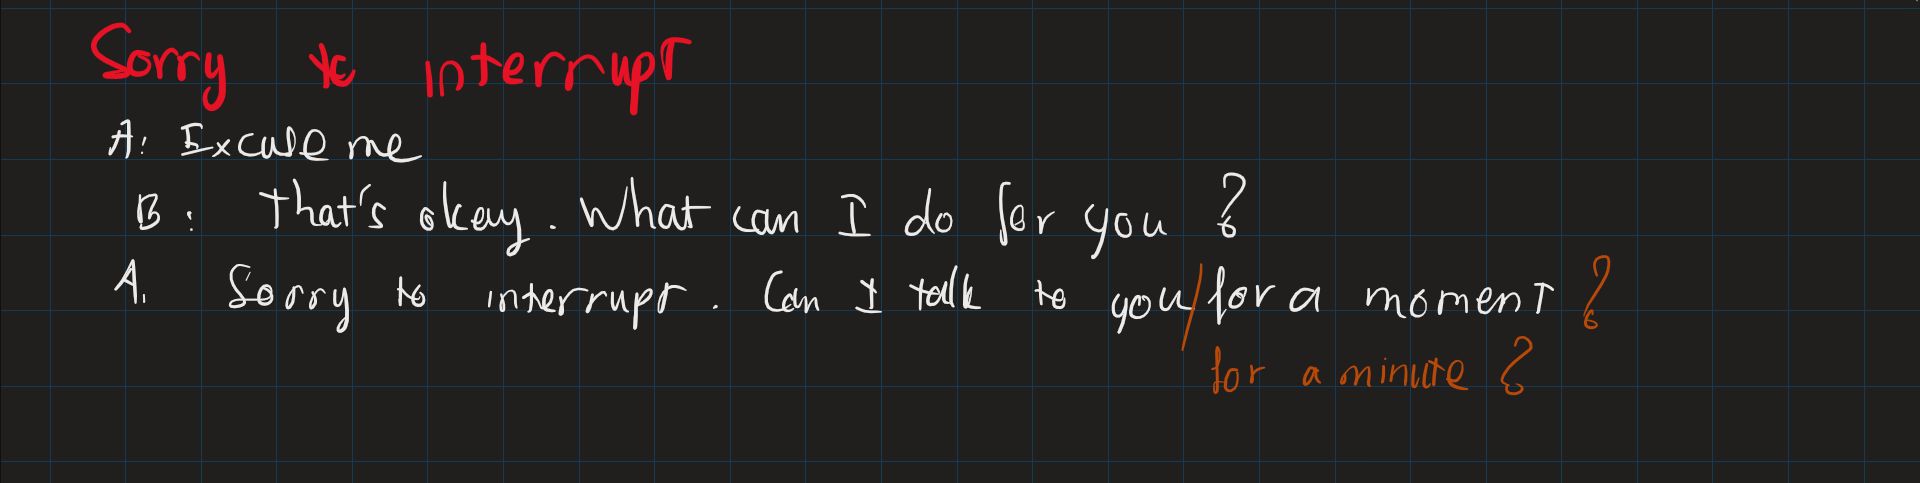 Sorry to interrupt
A: Excuse me
B: That's okay. What can I do for you?
A. Sorry to interrupt. Can I talk to you/for a moment?
for a minute?